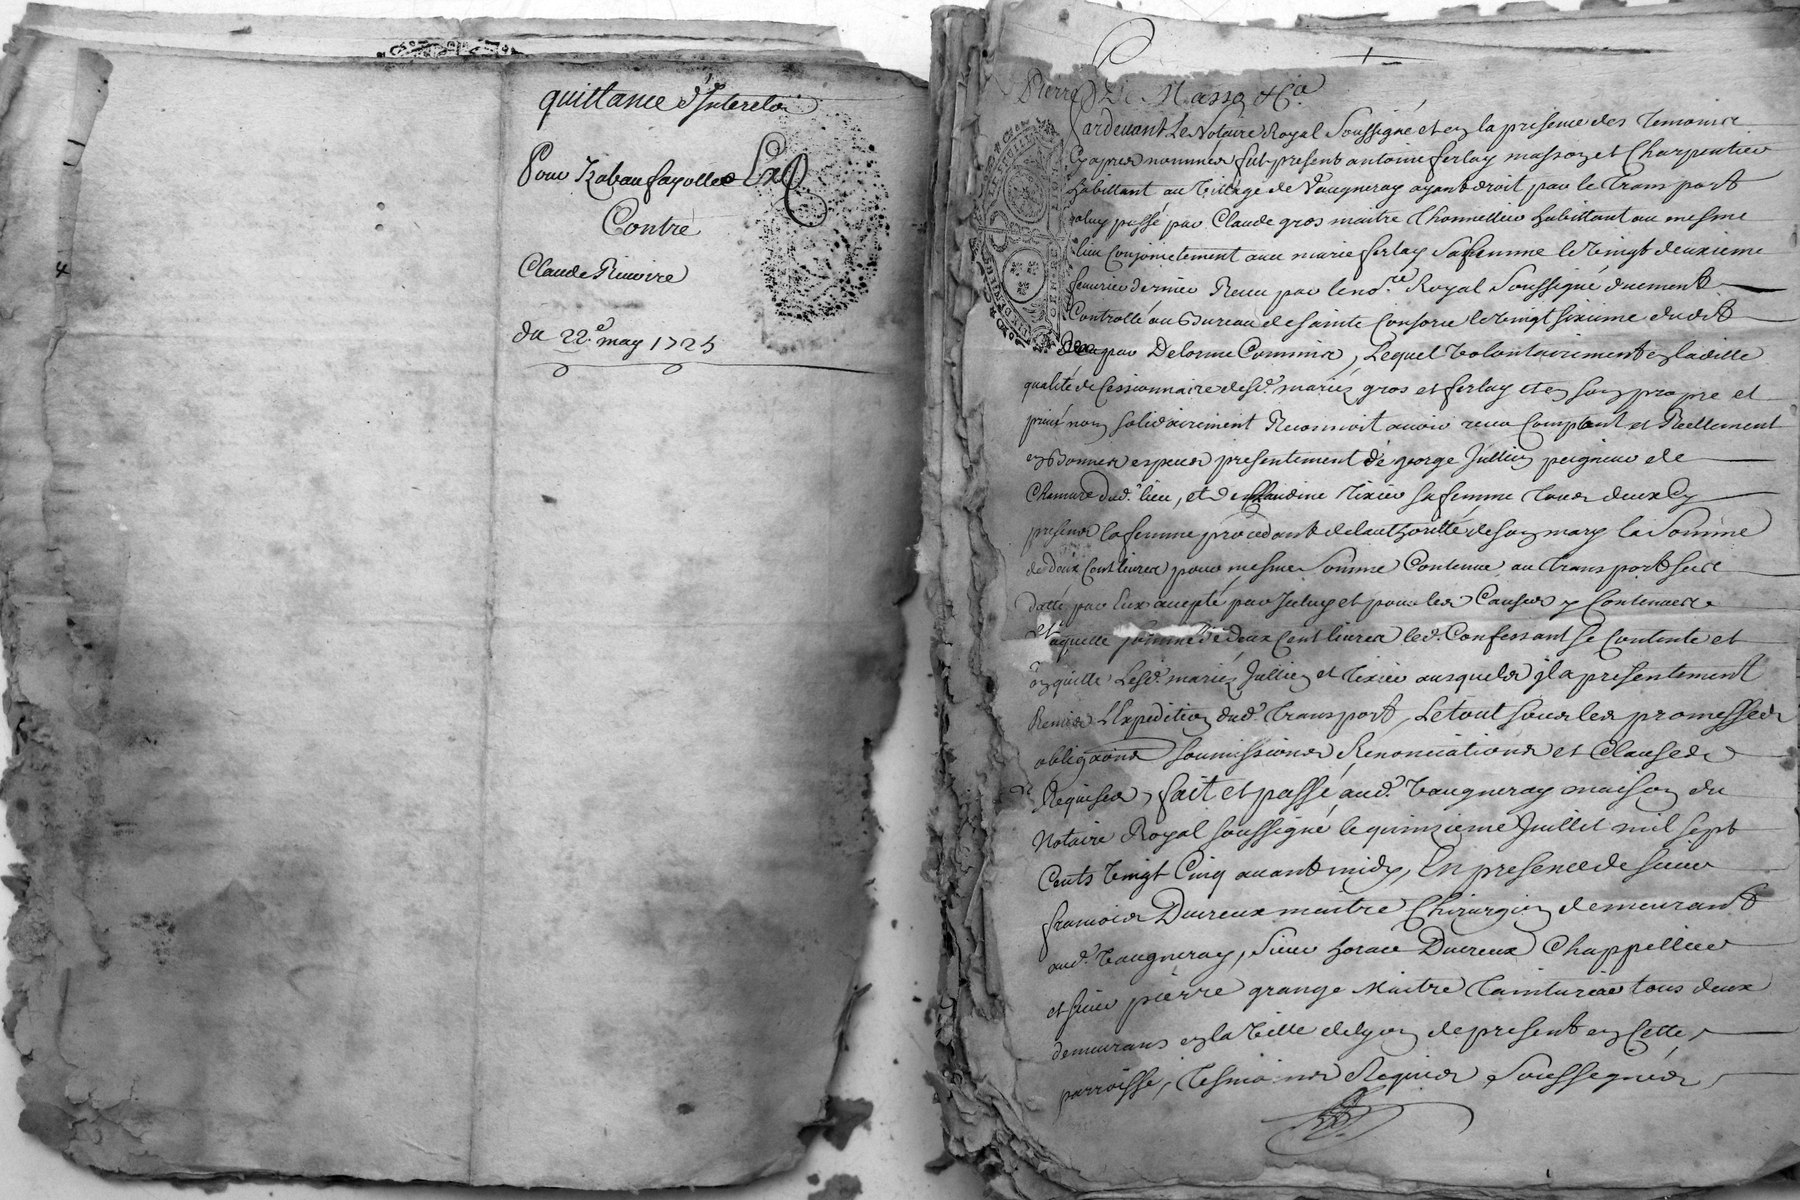 quittance d'Interets
Pour Izabau fayolle Exp
Contre
Claude Riuoire
du 22e. may 1725
4
Pierre De Masso & Ca
Pardeuant Le Notaire Royal Soussigné et en la presence des temoins
Cy apres nommes fut present antoine ferlay masson et Charpentier
habittant au Village de Vaugneray ayant droit par le transport
aluy passé par Claude gros maitre thonnellier habittant au mesme
lieu Conjointement auec marie ferlay Sa femme le Vingt deuxieme
feurier dernier Receu par le nore. Royal Soussigné duement
Controllé au Bureau de Sainte Consorce le Vingt sixieme dudit
par Delorme Commis, Lequel Volontairement en laditte
qualité de Cessionnaire desd. mariez gros et ferlay et en son propre et
priué nom solidairement Reconnoit auoir receu Comptant et Reellement
en Bonnes especes presentement de george Jullien peigneur de
Chanure dud. lieu, et de Claudine tixier sa femme tous deux Cy
presens la femme procedant de lauthorité de son mary la Somme
de deux Cent liures pour mesme Somme Contenue au transport sus
datté par Eux accepté par Icelluy et pour les Causes y Contenues
laquelle somme de deux Cent liures led. Confessant Se Contente et
en quitte Lesd. mariez Jullien et tixier ausquels jl a presentement
Remis LExpedition dud. transport, Le tout sous les promesses
obligaõns soumissions Renonciations et Clauses
Requises, fait et passé aud. Vaugneray maison du
Notaire Royal soussigné le quinzieme Juillet mil sept
Cents Vingt Cinq auant midy, En presence de sieur
francois Ducreux maitre Chirurgien demeurant
aud. Vaugneray, Sieur horace Ducreux Chappellier
et sieur pierre grange Maitre tainturier tous deux
demeurans en la Ville de lyon de present en Cette
parroisse, tesmoins Requis Soussignés